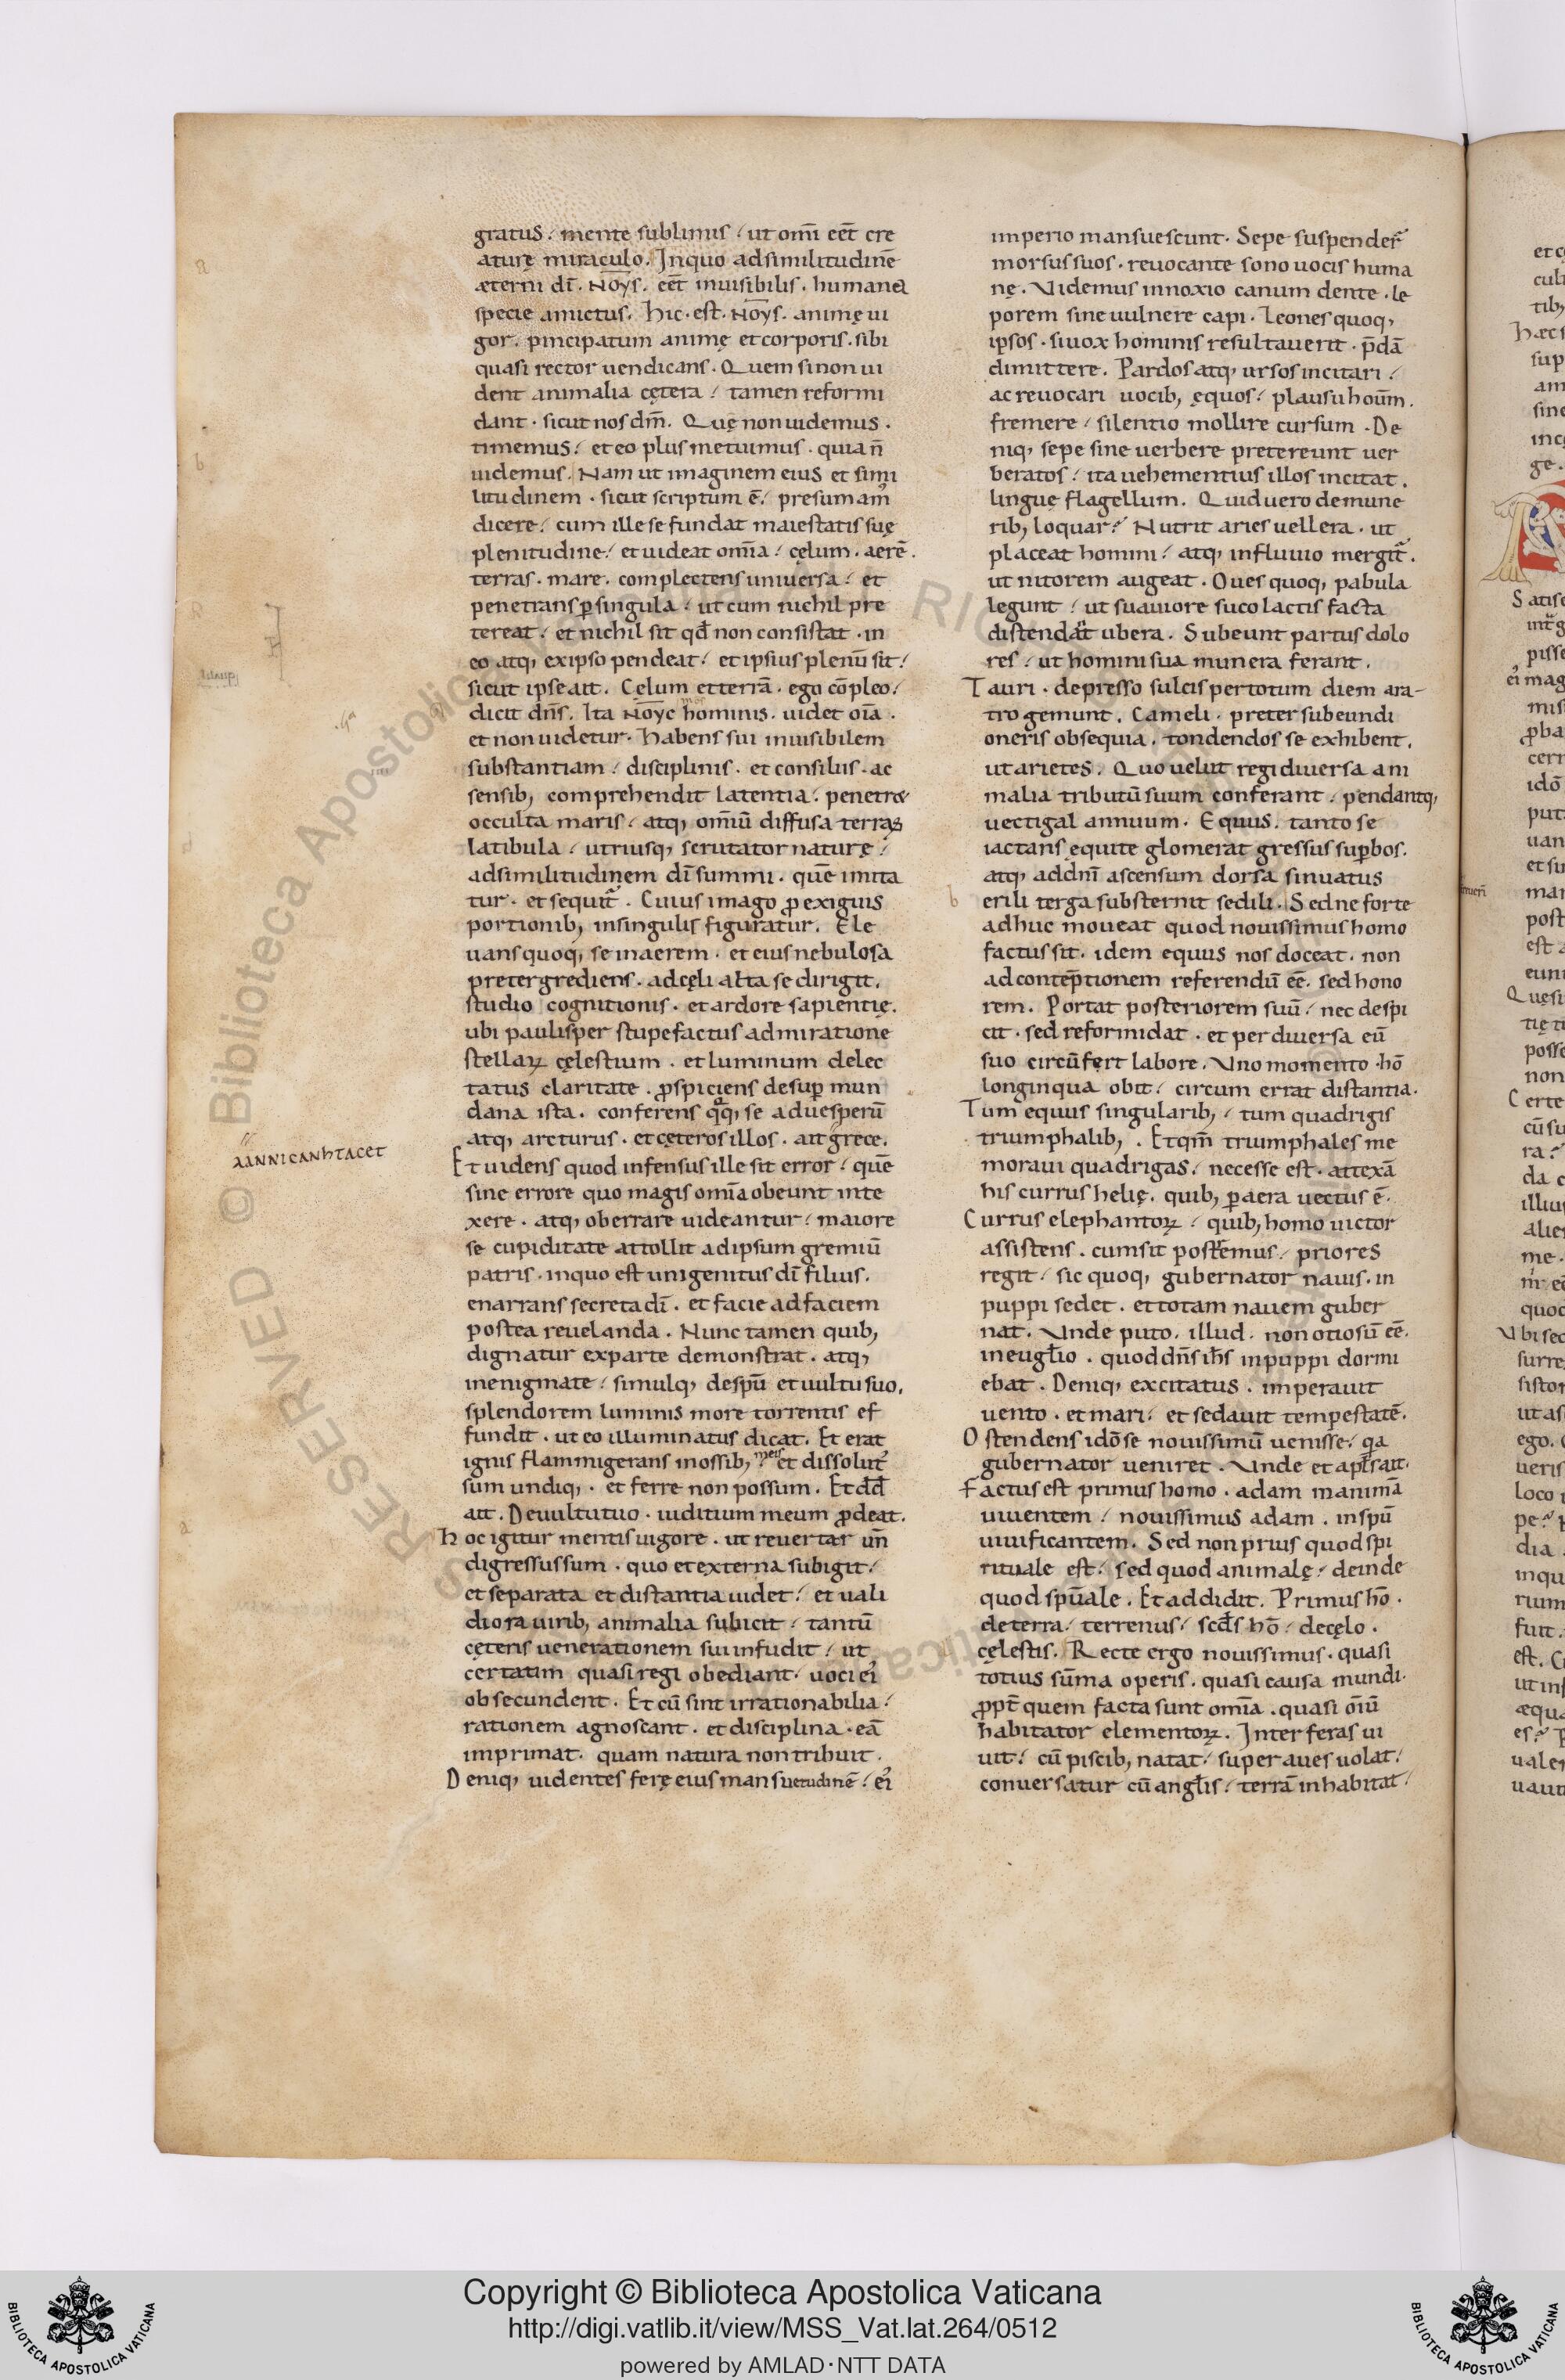 gratus. mente sublimis. ut omī eēt cre
aturę miraculo. In quo ad similitudinē
æterni dī. Noys. eēt inuisibilis. humana
specie amictus. Hic. est. Noys. animę ui
gor. pincipatum animę et corporis. sibi
quasi rector uendicans. Quem si non ui
dent animalia cętera. tamen reformi
dant. sicut nos dm̄. Quę non uidemus.
timemus. et eo plus metuimus. quia n̄
uidemus. Nam ut imaginem eius et simi
litudinem. sicut scriptum ē. presumam
dicere. cum ille se fundat maiestatis suę
plenitudine. et uideat om̄ia. cęlum. aerē.
terras. mare. complectens uniuersa. et
penetrans ꝑ singula. ut cum nichil pre
tereat. et nichil sit qd̄ non consistat. in
eo atq; ex ipso pendeat. et ipsius plenū sit.
sicut ipse ait. Cęlum et terrā. ego cōpleo.
dicit dn̄s. Ita Noyc hominis. uidet oīa.
et non uidetur. Habens sui inuisibilem
substantiam. disciplinis. et consiliis. ac
sensib; comprehendit latentia. penetrat
occulta maris. atq; om̄iū diffusa terraꝝ
latibula. utriusq; scrutator naturę.
ad similitudinem dī summi. quē imita
tur. et sequit᷑. Cuius imago ꝓ exiguis
portionib; in singulis figuratur. Ele
uans quoq; se in aerem. et eius nebulosa
pretergrediens. ad cęli alta se dirigit.
studio cognitionis. et ardore sapientię.
ubi paulisper stupefactus admiratione
stellaꝝ cęlestium. et luminum delec
tatus claritate. ꝓspiciens desuꝑ mun
dana ista. conferens qq; se ad uesperū
atq; arcturus. et cęteros illos. ait grece.
ΑΑΝΝΙCΑΝhΤΑCΕΤ
Et uidens quod infensus ille sit error. quē
sine errore quo magis om̄ia obeunt inte
xere. atq; oberrare uideantur. maiore
se cupiditate attollit ad ipsum gremiū
patris. in quo est unigenitus dī filius.
enarrans secreta dī. et facie ad faciem
postea reuelanda. Nunc tamen quib;
dignatur ex parte demonstrat. atq;
in enigmate. simulq; de spū et uultu suo.
splendorem luminis more torrentis ef
fundit. ut eo illuminatus dicat. Et erat
ignis flammigerans in ossib; meis et dissolut᷑
sum undiq;. et ferre non possum. Et dd̄
ait. De uultu tuo. iuditium meum ꝓdeat.
Hoc igitur mentis uigore. ut reuertar un̄
digressus sum. quo et externa subigit.
et separata et distantia uidet. et uali
diora uirib; animalia subicit. tantū
cęteris uenerationem sui infudit. ut
certatim quasi regi obediant. uoci ei᷑
obsecundent. Et cū sint irrationabilia.
rationem agnoscant. et disciplina. eā
imprimat. quam natura non tribuit.
Deniq; uidentes ferę eius mansuetudinē. ei᷑
imperio mansuescunt. Sepe suspender̄
morsus suos. reuocante sono uocis huma
nę. Videmus innoxio canum dente. le
porem sine uulnere capi. Leones quoq;
ipsos. si uox hominis resultauerit. p̄dā
dimittere. Pardos atq; ursos incitari.
ac reuocari uocib; ęquos. plausu houm̄.
fremere. silentio mollire cursum. De
niq; sepe sine uerbere pretereunt uer
beratos. ita uehementius illos incitat.
linguę flagellum. Quid uero de mune
rib; loquar? Nutrit aries uellera. ut
placeat homini. atq; in fluuio mergit᷑.
ut nitorem augeat. Oues quoq; pabula
legunt. ut suauiore suco lactis facta
distendat ubera. Subeunt partus dolo
res. ut homini sua munera ferant.
Tauri. depresso sulcis per totum diem ara-
tro gemunt. Cameli. preter subeundi
oneris obsequia. tondendos se exhibent.
ut arietes. Quo uelut regi diuersa ani
malia tributū suum conferant. pendantq;
uectigal annuum. Equus. tanto se
iactans equite glomerat gressus suꝑbos.
atq; ad dn̄i ascensum dorsa sinuatus
erili terga substernit sedili. Sed ne forte
adhuc moueat quod nouissimus homo
factus sit. idem equus nos doceat. non
ad contēptionem referendū eē. sed hono
rem. Portat posteriorem suū. nec despi
cit. sed reformidat. et per diuersa eū
suo circūfert labore. Vno momento. hō
longinqua obit. circum errat distantia.
Tum equis singularib;. tum quadrigis
triumphalib;. Et qm̄ triumphales me
moraui quadrigas. necesse est. attexā
his currus helię. quib; ꝑ aera uectus ē.
Currus elephantoꝝ. quib; homo uictor
assistens. cum sit postremus. priores
regit. sic quoq; gubernator nauis. in
puppi sedet. et totam nauem guber
nat. Vnde puto. illud. non otiosū eē.
in euglio. quod dn̄s ih̄s in puppi dormi
ebat. Deniq; excitatus. imperauit
uento. et mari. et sedauit tempestatē.
Ostendens idō se nouissimū uenisse. qa
gubernator ueniret. Vnde et apl̄s ait.
Factus est primus homo. adam in animā
uiuentem. nouissimus adam. in spū
uiuificantem. Sed non prius quod spi
rituale est. sed quod animalę. deinde
quod spūale. Et addidit. Primus hō.
de terra. terrenus. scd̄s hō. de cęlo.
cęlestis. Recte ergo nouissimus. quasi
totius sūma operis. quasi causa mundi.
ꝓpt̄ quem facta sunt om̄ia. quasi oīū
habitator elementoꝝ. Inter feras ui
uit. cū piscib; natat. super aues uolat.
conuersatur cū angl̄is. terrā inhabitat.
Copyright © Biblioteca Apostolica Vaticana
http://digi.vatlib.it/view/MSS_Vat.lat.264/0512
powered by AMLAD·NTT DATA